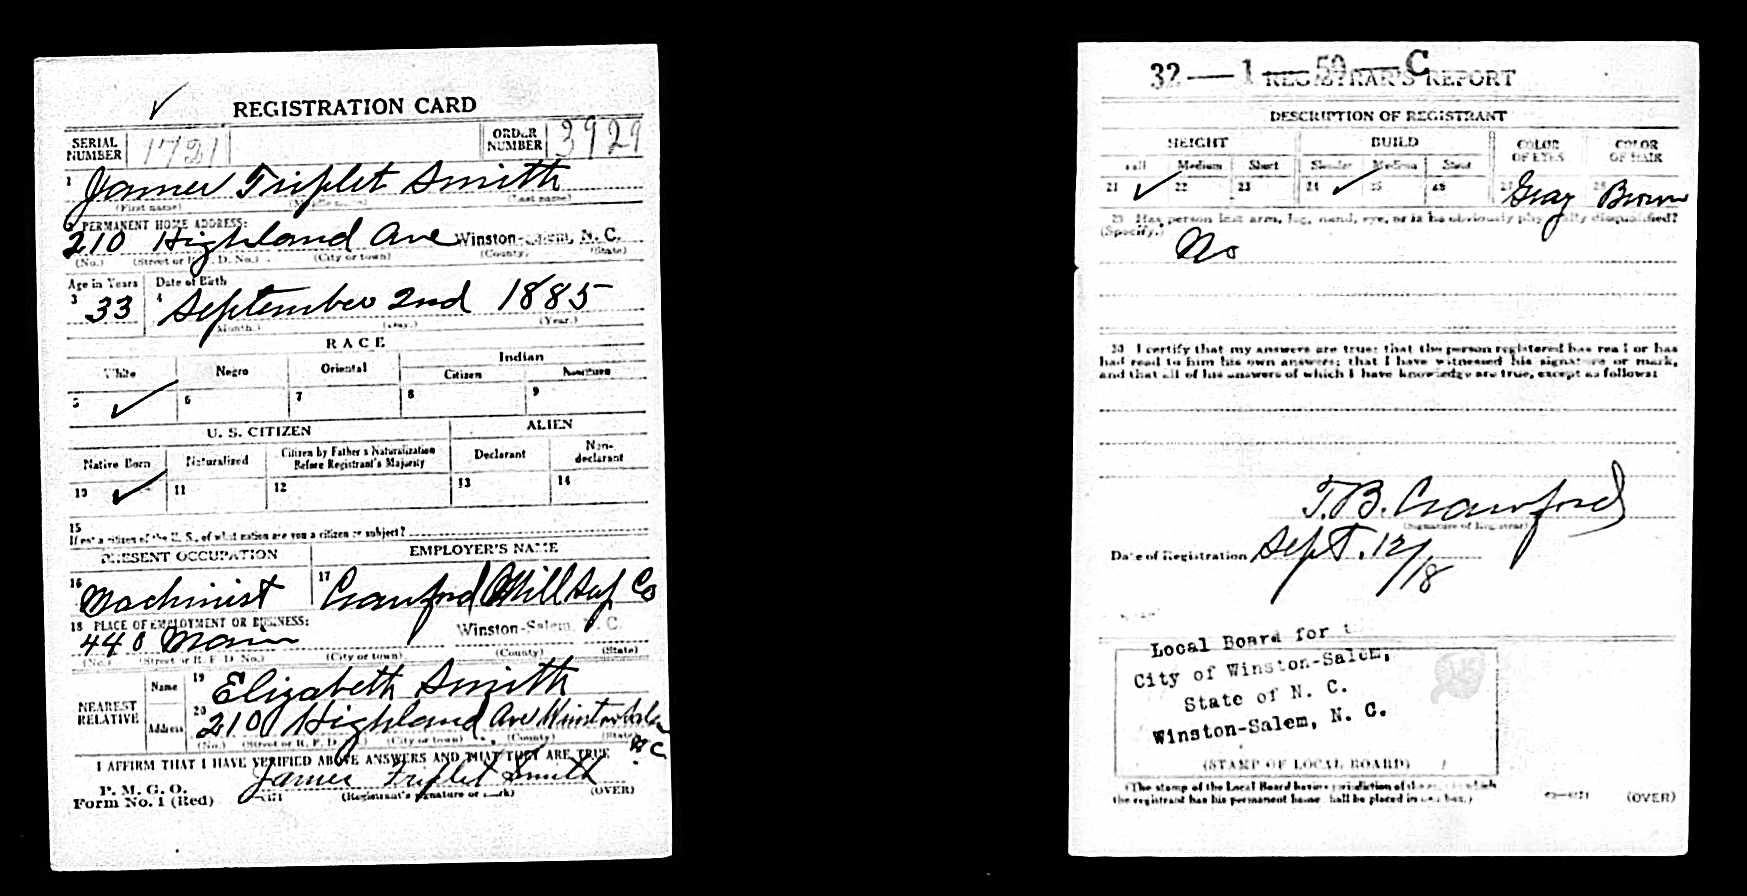 REGISTRATION CARD
SERIAL NUMBER 1721 ORDER NUMBER 3929
1 James Triplet Smith
(First name) (Middle name) (Last name)
2 PERMANENT HOME ADDRESS:
210 Highland Ave Winston-Salem, N. C.
(No.) (Street or R. F. D. No.) (City or town) (County) (State)
Age in Years Date of Birth
3 33 4 September 2nd 1885
(Month.) (Day.) (Year.)
RACE
White Negro Oriental Indian
Citizen Noncitizen
5 ✓ 6 7 8 9
U. S. CITIZEN ALIEN
Native Born Naturalized Citizen by Father's Naturalization Before Registrant's Majority Declarant Non-declarant
10 ✓ 11 12 13 14
15
If not a citizen of the U. S., of what nation are you a citizen or subject?
PRESENT OCCUPATION EMPLOYER'S NAME
16 Machinist 17 Crawford Mill Sup Co
18 PLACE OF EMPLOYMENT OR BUSINESS:
440 Main Winston-Salem, N. C.
(No.) (Street or R. F. D. No.) (City or town) (County) (State)
NEAREST RELATIVE Name 19 Elizabeth Smith
Address 20 210 Highland Ave Winston Salem N C
(No.) (Street or R. F. D. No.) (City or town) (County) (State)
I AFFIRM THAT I HAVE VERIFIED ABOVE ANSWERS AND THAT THEY ARE TRUE
P. M. G. O.
Form No. 1 (Red) James Triplet Smith
(Registrant's signature or mark) (OVER)
32—1—59—C
REGISTRAR'S REPORT
DESCRIPTION OF REGISTRANT
HEIGHT BUILD COLOR OF EYES COLOR OF HAIR
Tall Medium Short Slender Medium Stout
21 ✓ 22 23 24 ✓ 25 26 27 Gray 28 Brown
29 Has person lost arm, leg, hand, eye, or is he obviously physically disqualified?
(Specify.)
No
30 I certify that my answers are true; that the person registered has read or has
had read to him his own answers; that I have witnessed his signature or mark,
and that all of his answers of which I have knowledge are true, except as follows:
T. B. Crawford
(Signature of Registrar)
Date of Registration Sept. 12/18
Local Board for
City of Winston-Salem,
State of N. C.
Winston-Salem, N. C.
(STAMP OF LOCAL BOARD)
(The stamp of the Local Board having jurisdiction of the area in which
the registrant has his permanent home shall be placed in this box.)
(OVER)